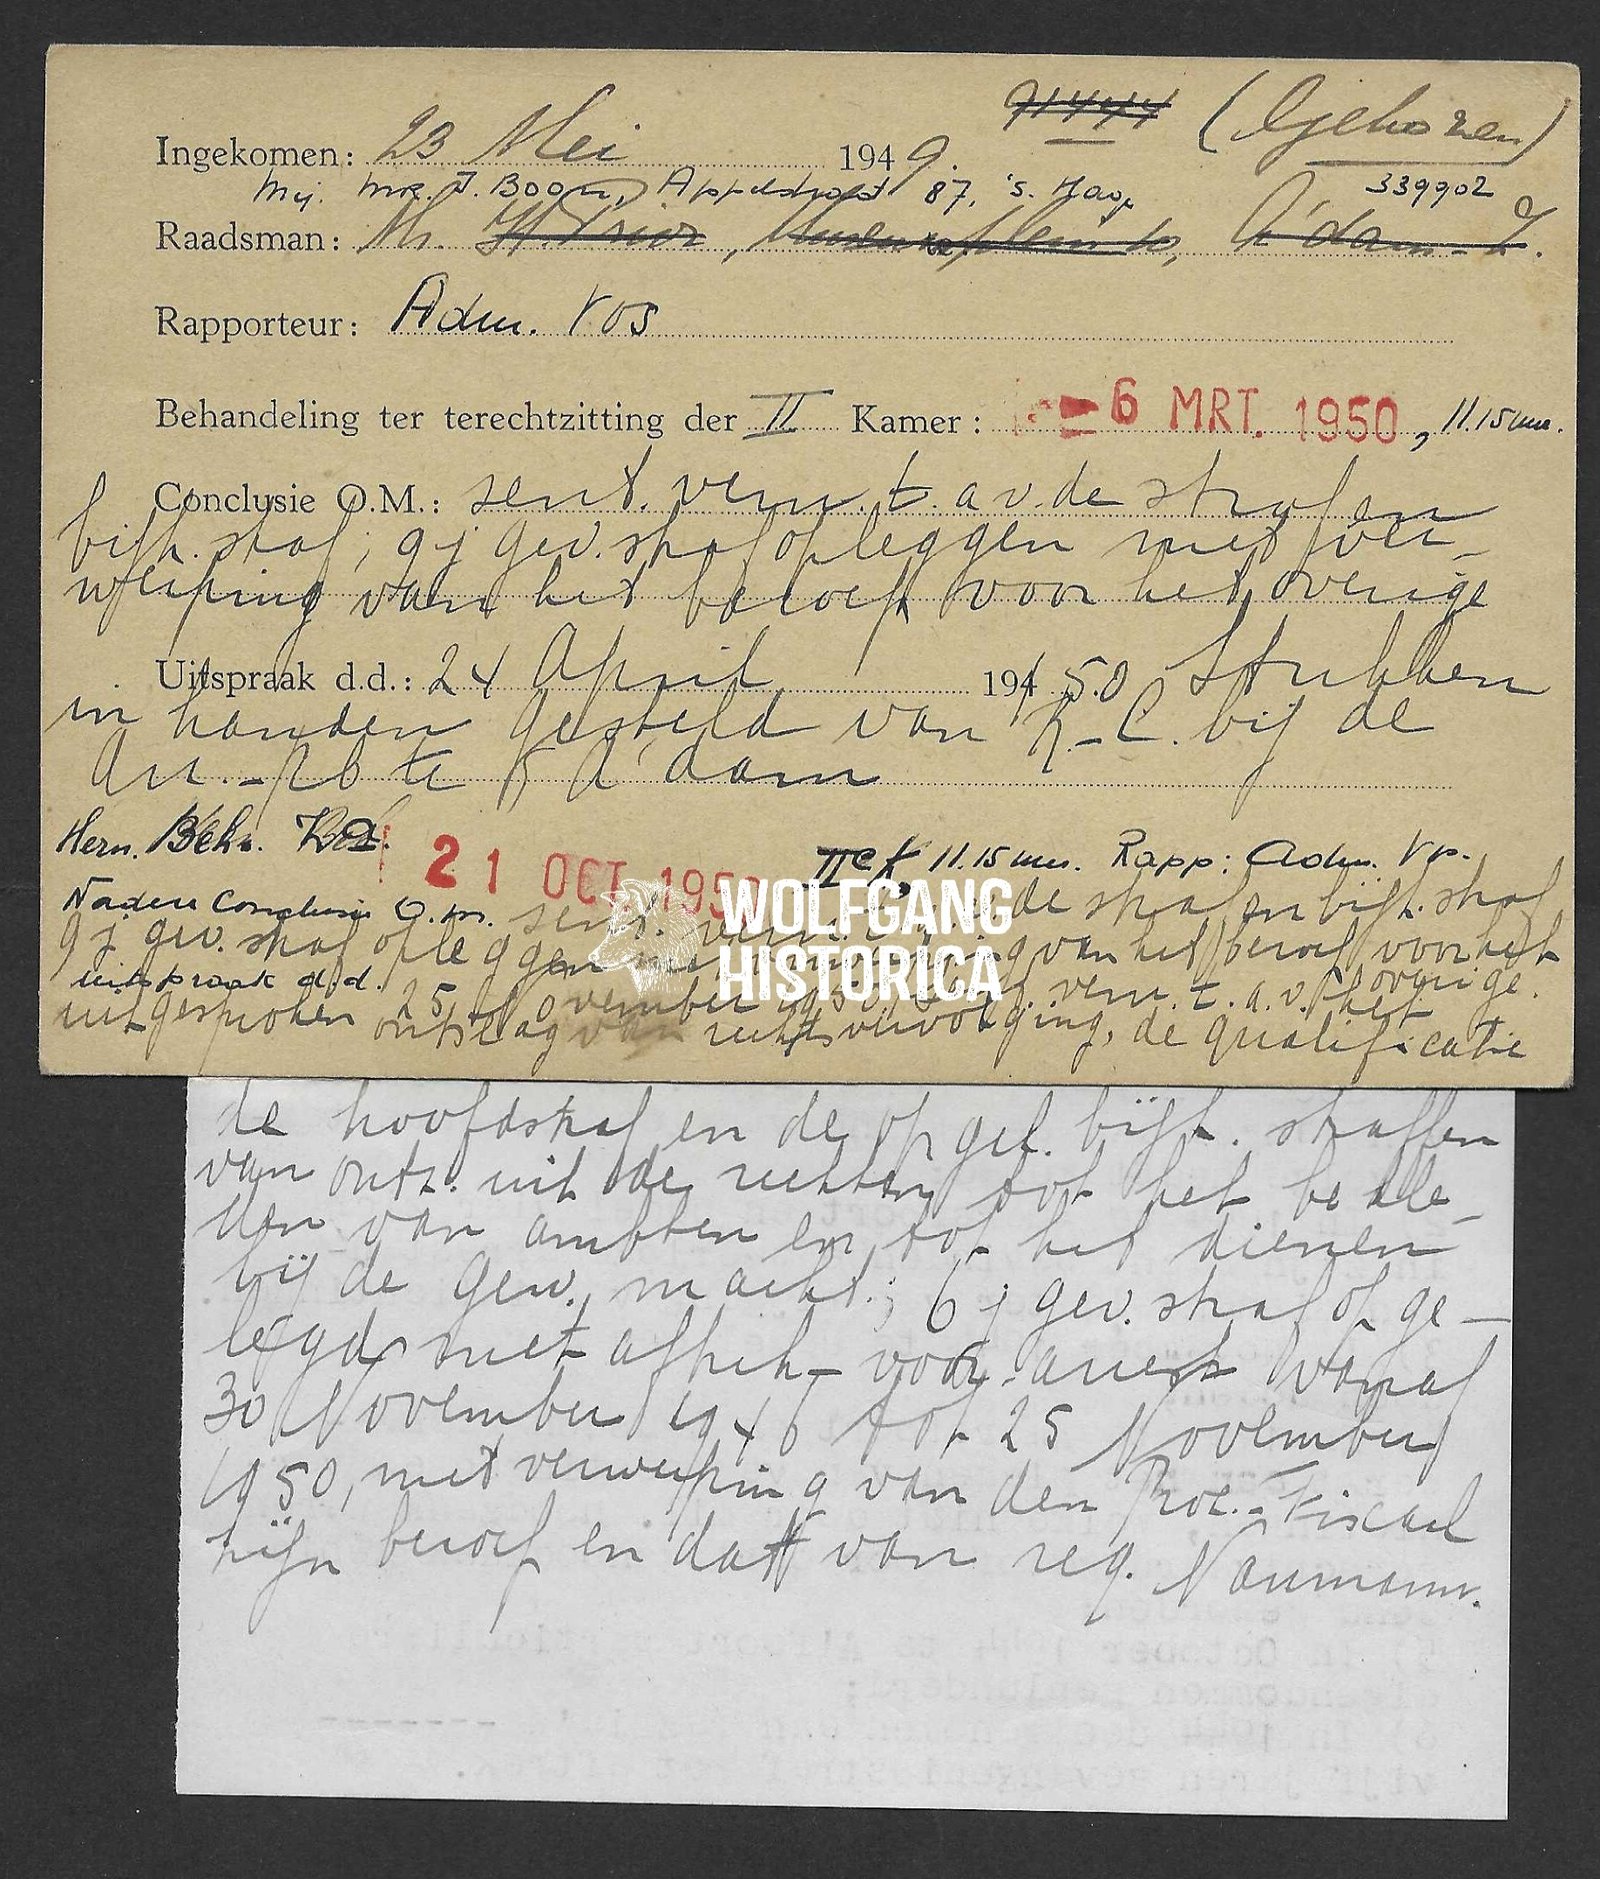 Ingekomen: 23 Mei 1949. 91444 (Gekozen)
Mej. Mr. J. Boon, 87, 's. Hage 339902
Raadsman: Mr. H. Prior, A'dam-Z.
Rapporteur: Adm. Vos
Behandeling ter terechtzitting der II Kamer: -6 MRT. 1950, 11.15 uur.
Conclusie O.M.: sent. vern. t.a.v. de straf en
bijk. straf; 9 j gev. straf opleggen met ver-
werping van het beroep voor het overige
Uitspraak d.d.: 24 April 194 50 Stukken
in handen gesteld van R.-C. bij de
Arr.-Rb te A'dam
Hern. Beh. 21 OCT. 1950 IIe K, 11.15 uur. Rapp: Adm. Vos.
Nadere Conclusie O.M. sent. vern. de straf en bijk. straf
9 j gev. straf opleggen met van het beroep voor het
overige.
uitspraak d.d.
uitgesproken 25 November 1950 vern. t.a.v. het
ontslag van rechtsvervolging, de qualificatie
de hoofdstraf en de opgel. bijk. straffen
van ontz. uit de rechten tot het beklee-
den van ambten en tot het dienen
bij de gew. macht.; 6 j gev. straf opge-
legd met aftrek voor. arrest vanaf
30 November 1946 tot 25 November
1950, met verwerping van den Proc.-Fiscaal
zijn beroep en dat van req. Naumann.
WOLFGANG
HISTORICA